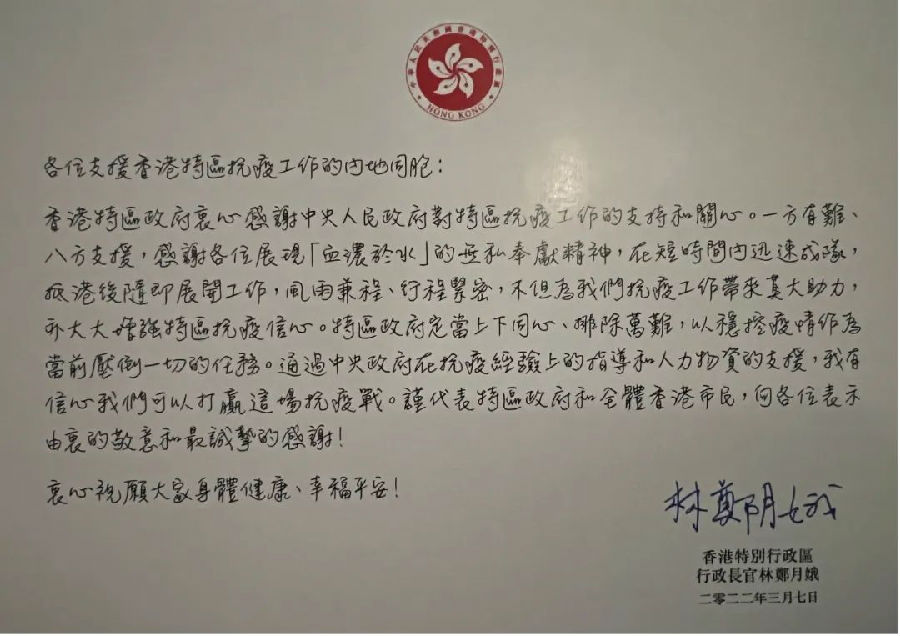 中華人民共和國香港特別行政區
HONG KONG
各位支援香港特區抗疫工作的內地同胞：
香港特區政府衷心感謝中央人民政府對特區抗疫工作的支持和關心。一方有難、
八方支援，感謝各位展現「血濃於水」的無私奉獻精神，在短時間內迅速成隊，
抵港後隨即展開工作，風雨兼程、行程緊密，不但為我們抗疫工作帶來莫大助力，
亦大大增強特區抗疫信心。特區政府定當上下同心、排除萬難，以穩控疫情作為
當前壓倒一切的任務。通過中央政府在抗疫經驗上的指導和人力物資的支援，我有
信心我們可以打贏這場抗疫戰。謹代表特區政府和全體香港市民，向各位表示
由衷的敬意和最誠摯的感謝！
衷心祝願大家身體健康、幸福平安！
林鄭月娥
香港特別行政區
行政長官林鄭月娥
二零二二年三月七日